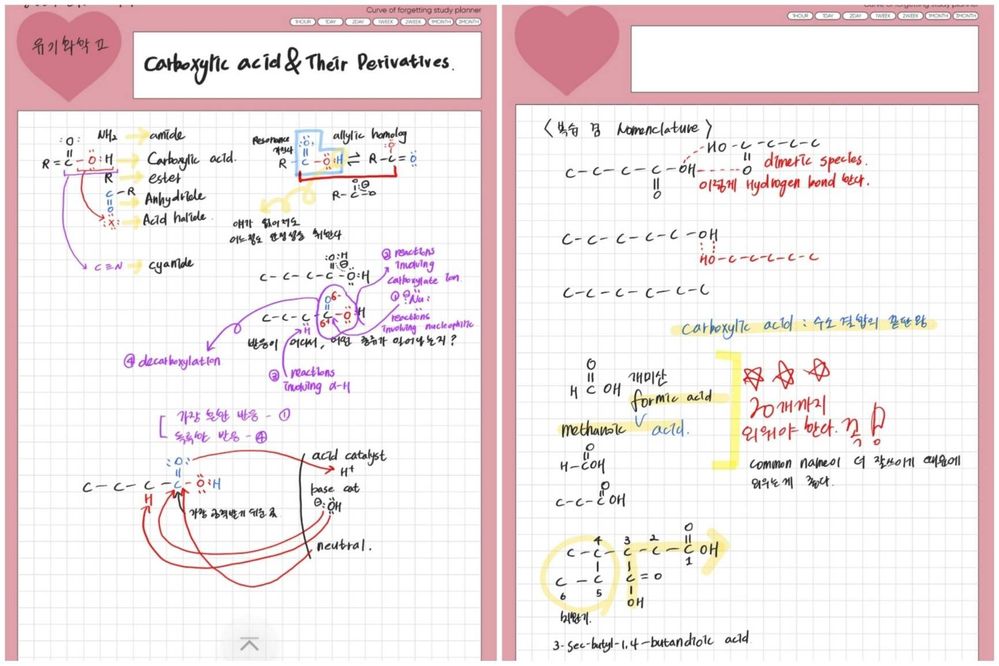 Curve of forgetting study planner
1HOUR 1DAY 2DAY 1WEEK 2WEEK 1MONTH 2MONTH
유기화학 II
Carboxylic acid & Their Derivatives.
NH₂ → amide
:O:
R = C - O - H → Carboxylic acid.
R → ester
C - R → Anhydride
O
:X: → Acid halide.
C≡N → cyanide
Resonance
allylic homolog
:O:
R - C - O - H ⇌ R - C = O
O
R - C - O ⊖
얘가 없어져도
어느정도 안정성을 취한다
:O:H
C - C - C - C - C - O - H
O δ-
C - C - C - C - O - H
H δ+
③ reactions
involving
carboxylate ion.
① ⊖:Nu:
reactions
involving nucleophilic
반응이 어디서, 어떤 종류가 일어나는지?
④ decarboxylation
② reactions
involving α-H
가장 흔한 반응 - ①
독특한 반응 - ④
:O:
C - C - C - C - C - O - H
H
acid catalyst
H⁺
base cat
⊖:OH
neutral.
가장 공격받기 쉬운 곳
Curve of forgetting study planner
1HOUR 1DAY 2DAY 1WEEK 2WEEK 1MONTH 2MONTH
〈복습 겸 Nomenclature〉
HO - C - C - C - C - C
O
C - C - C - C - C - OH
O
dimeric species.
이렇게 Hydrogen bond 한다.
C - C - C - C - C - C - OH
HO - C - C - C - C - C
C - C - C - C - C - C
Carboxylic acid : 수소 결합의 끝판왕
O
H C OH
개미산
formic acid
methanoic acid.
20개까지
외워야 한다. 꼭!
O
H - C OH
common name이 더 잘쓰이기 때문에
외우는게 좋다.
O
C - C - C OH
4 3 2 O
C - C - C - C - C OH
1
C - C C = O
6 5 OH
3-sec-butyl-1,4-butandioic acid